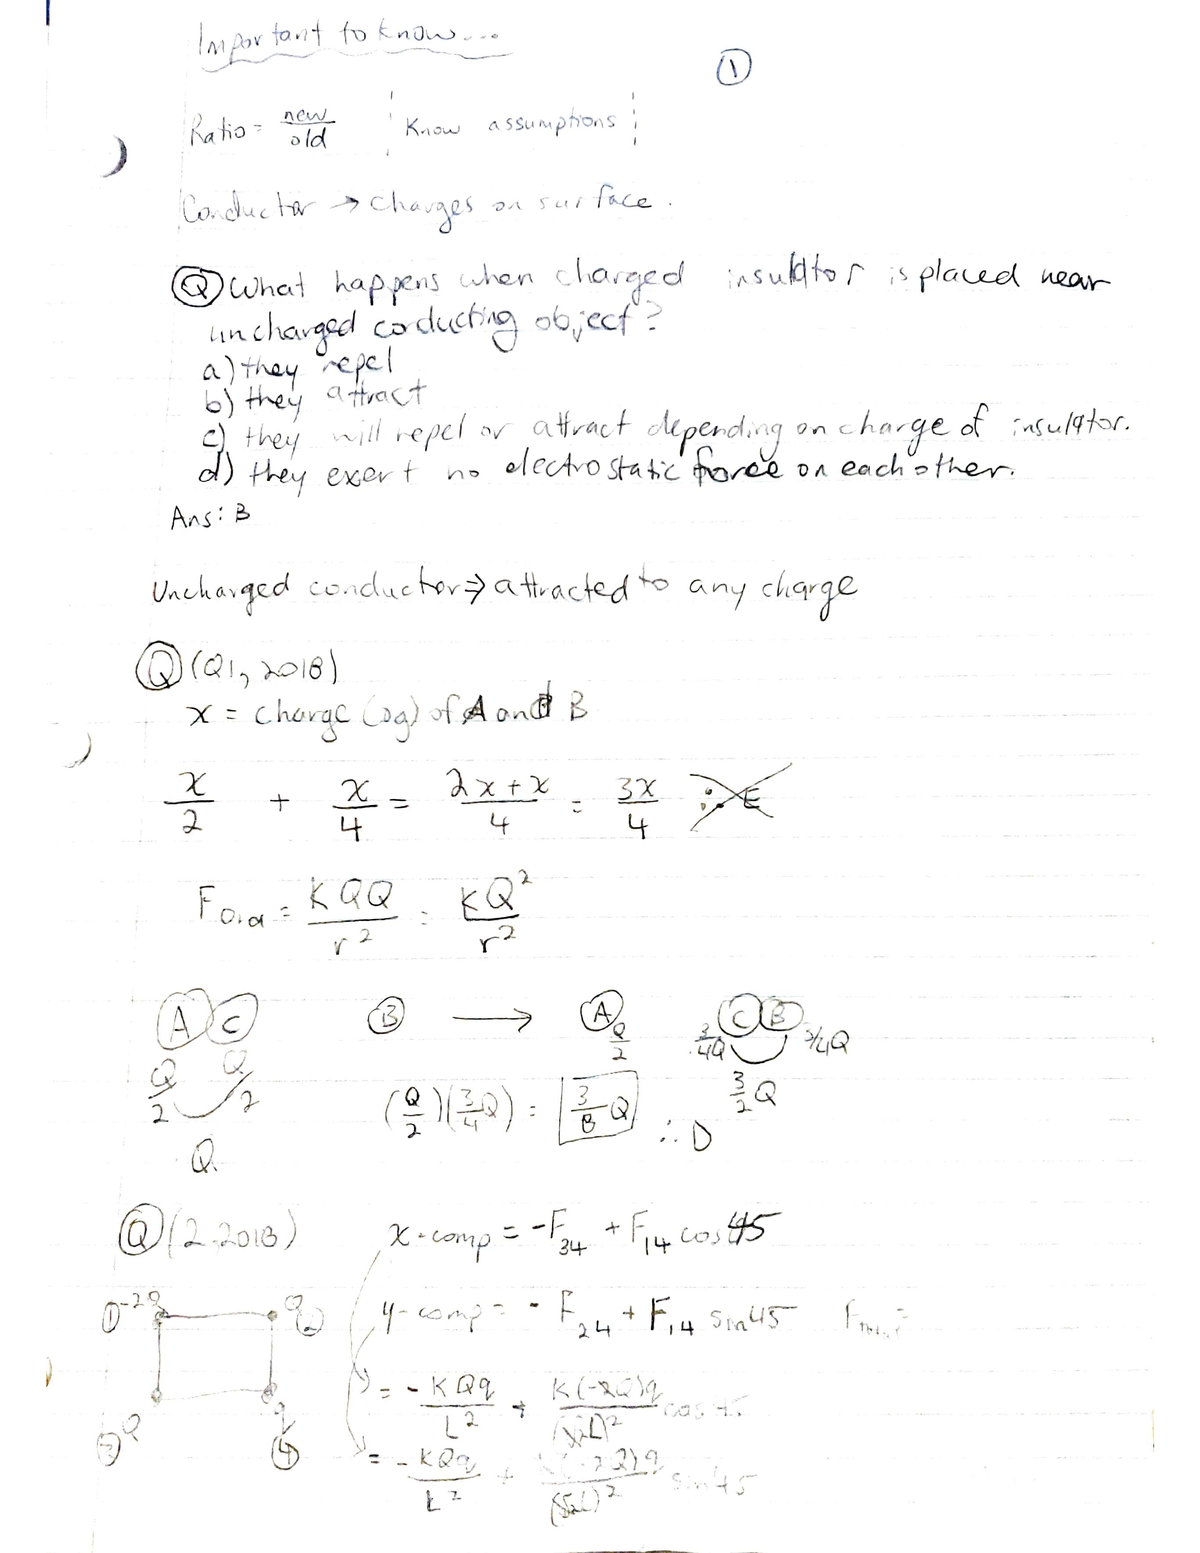 Important to know...
①
Ratio = new/old   Know assumptions
Conductor → charges on surface.
Ⓠ What happens when charged insulator is placed near
uncharged conducting object?
a) they repel
b) they attract
c) they will repel or attract depending on charge of insulator.
d) they exert no electrostatic force on each other.
Ans: B
Uncharged conductor ⇒ attracted to any charge
Ⓠ (Q1, 2018)
x = charge (og) of A and B
x/2 + x/4 = 2x+x/4 = 3x/4 ∴ E
F old = KQQ/r² = KQ²/r²
A C   B → A   C B
Q/2 Q/2   Q/2   3/4Q 3/4Q
Q   (Q/2)(3/4Q) = 3/8 Q ∴ D   3/2 Q
Ⓠ (2, 2018)   x-comp = -F34 + F14 cos 45
① -2Q   Q ②   y-comp = -F24 + F14 sin 45
= -KQq/L² + K(-2Q)q/(√2L)² cos 45
③ Q   q ④
= -KQq/L² + (-2Q)q/(√2L)² sin 45